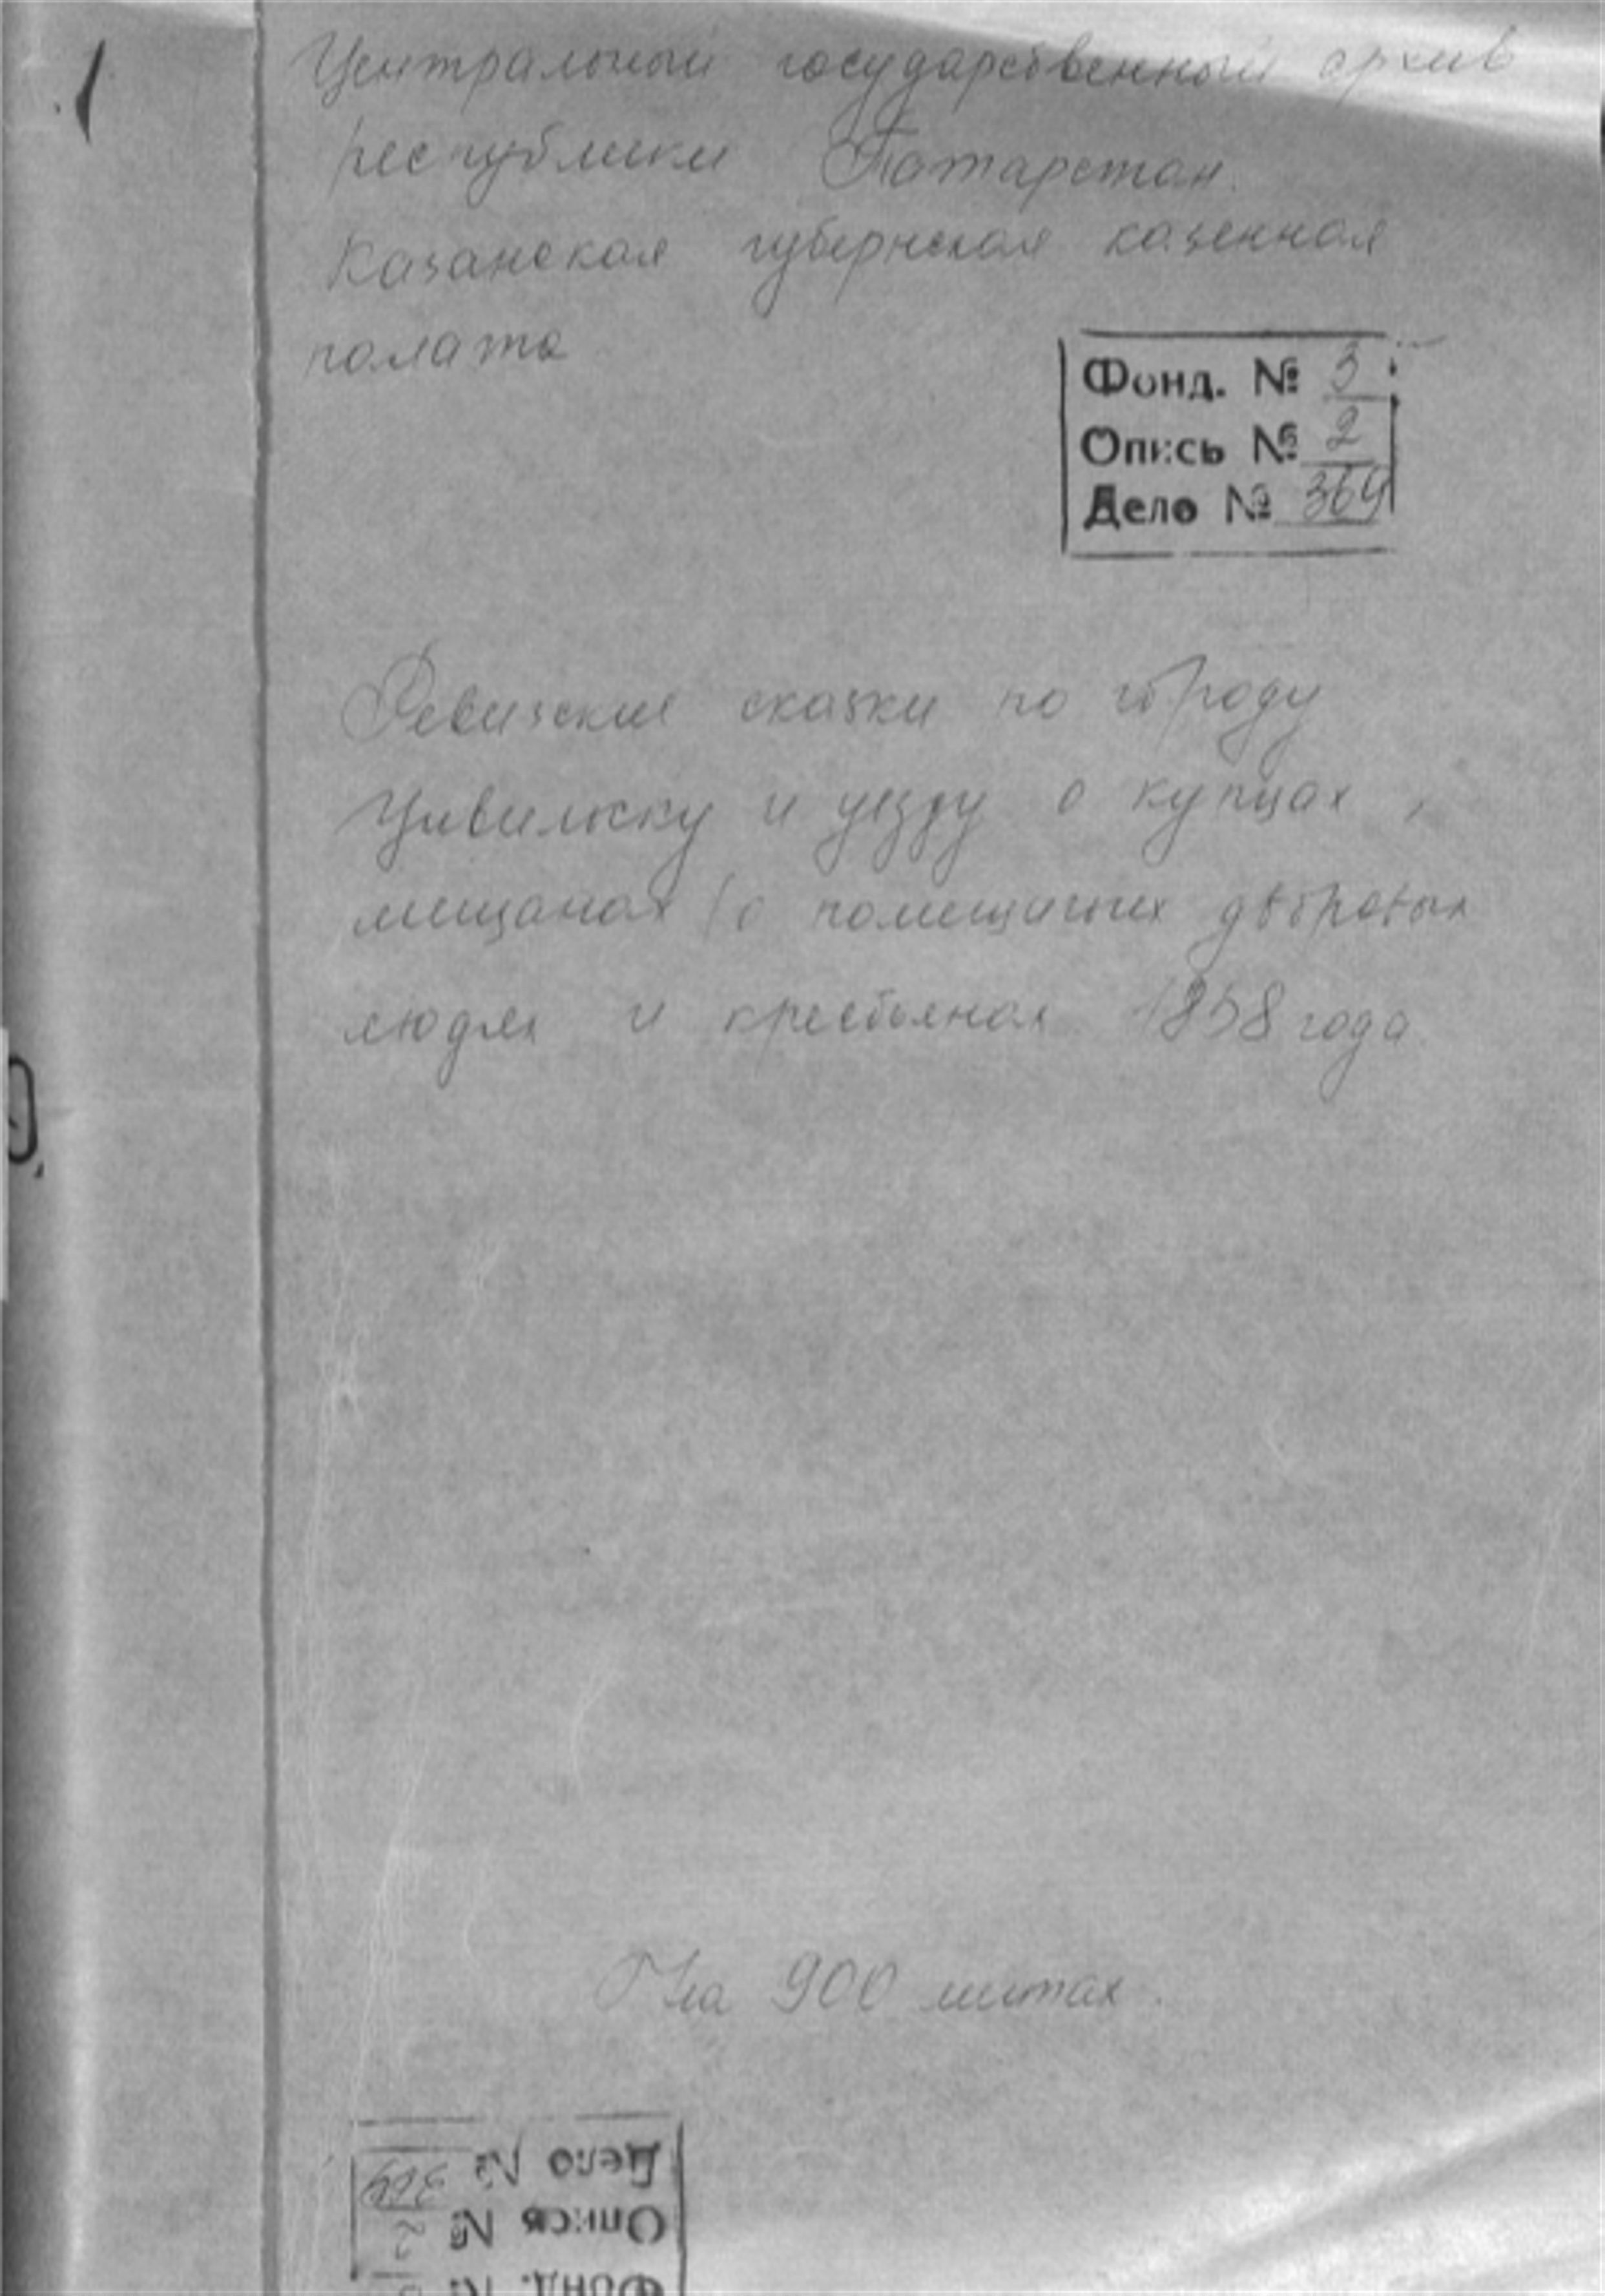 Центральный государственный архив
республики Татарстан.
Казанская губернская казенная
палата
Фонд. № 3
Опись № 2
Дело № 364
Ревизские сказки по городу
Цивильску и уезду о купцах,
мещанах, о помещичьих дворовых
людях и крестьянах 1858 года
На 900 листах.
Дело № 364
Опись № 2
Фонд. №